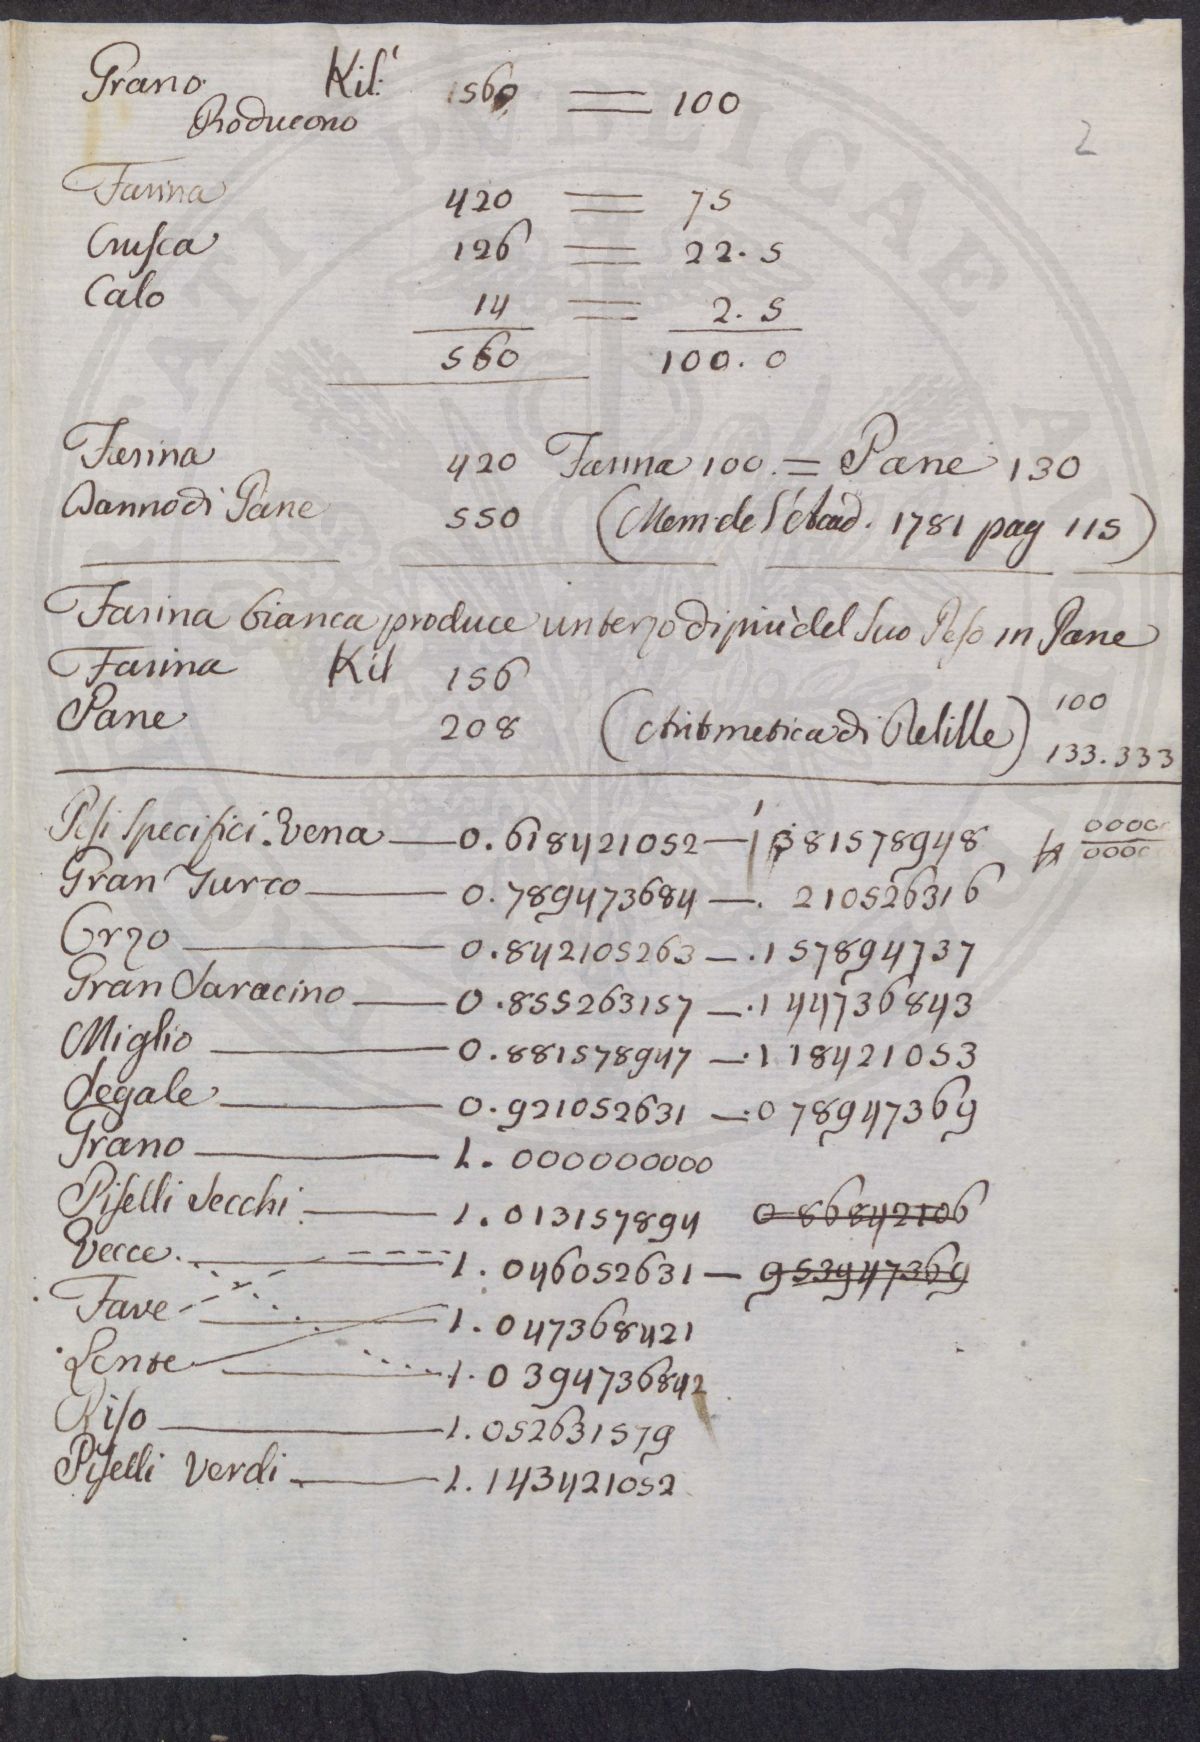 Grano Kil: 1560 = 100
Producono
2
Farina 420 = 75
Crusca 126 = 22.5
Calo 14 = 2.5
560 100.0
Farina 420 Farina 100. = Pane 130
Dannodi Pane 550 (Mem. de l'Acad. 1781 pag 115)
Farina bianca produce un terzo di più del suo Peso in Pane
Farina Kil 156
Pane 208 (Aritmetica di Relille) 100
133.333
Pesi specifici. Vena — 0.618421052 — 381578948
Gran Turco — 0.789473684 — .210526316
Orzo — 0.842105263 — .157894737
Gran Saracino — 0.855263157 — .144736843
Miglio — 0.881578947 — .118421053
Segale — 0.921052631 — .078947369
Grano — 1.000000000
Piselli secchi — 1.013157894 0 86842106
Vecce — 1.046052631 — 953947369
Fave — 1.047368421
Lente — 1.0394736842
Riso — 1.052631579
Piselli verdi — 1.143421052